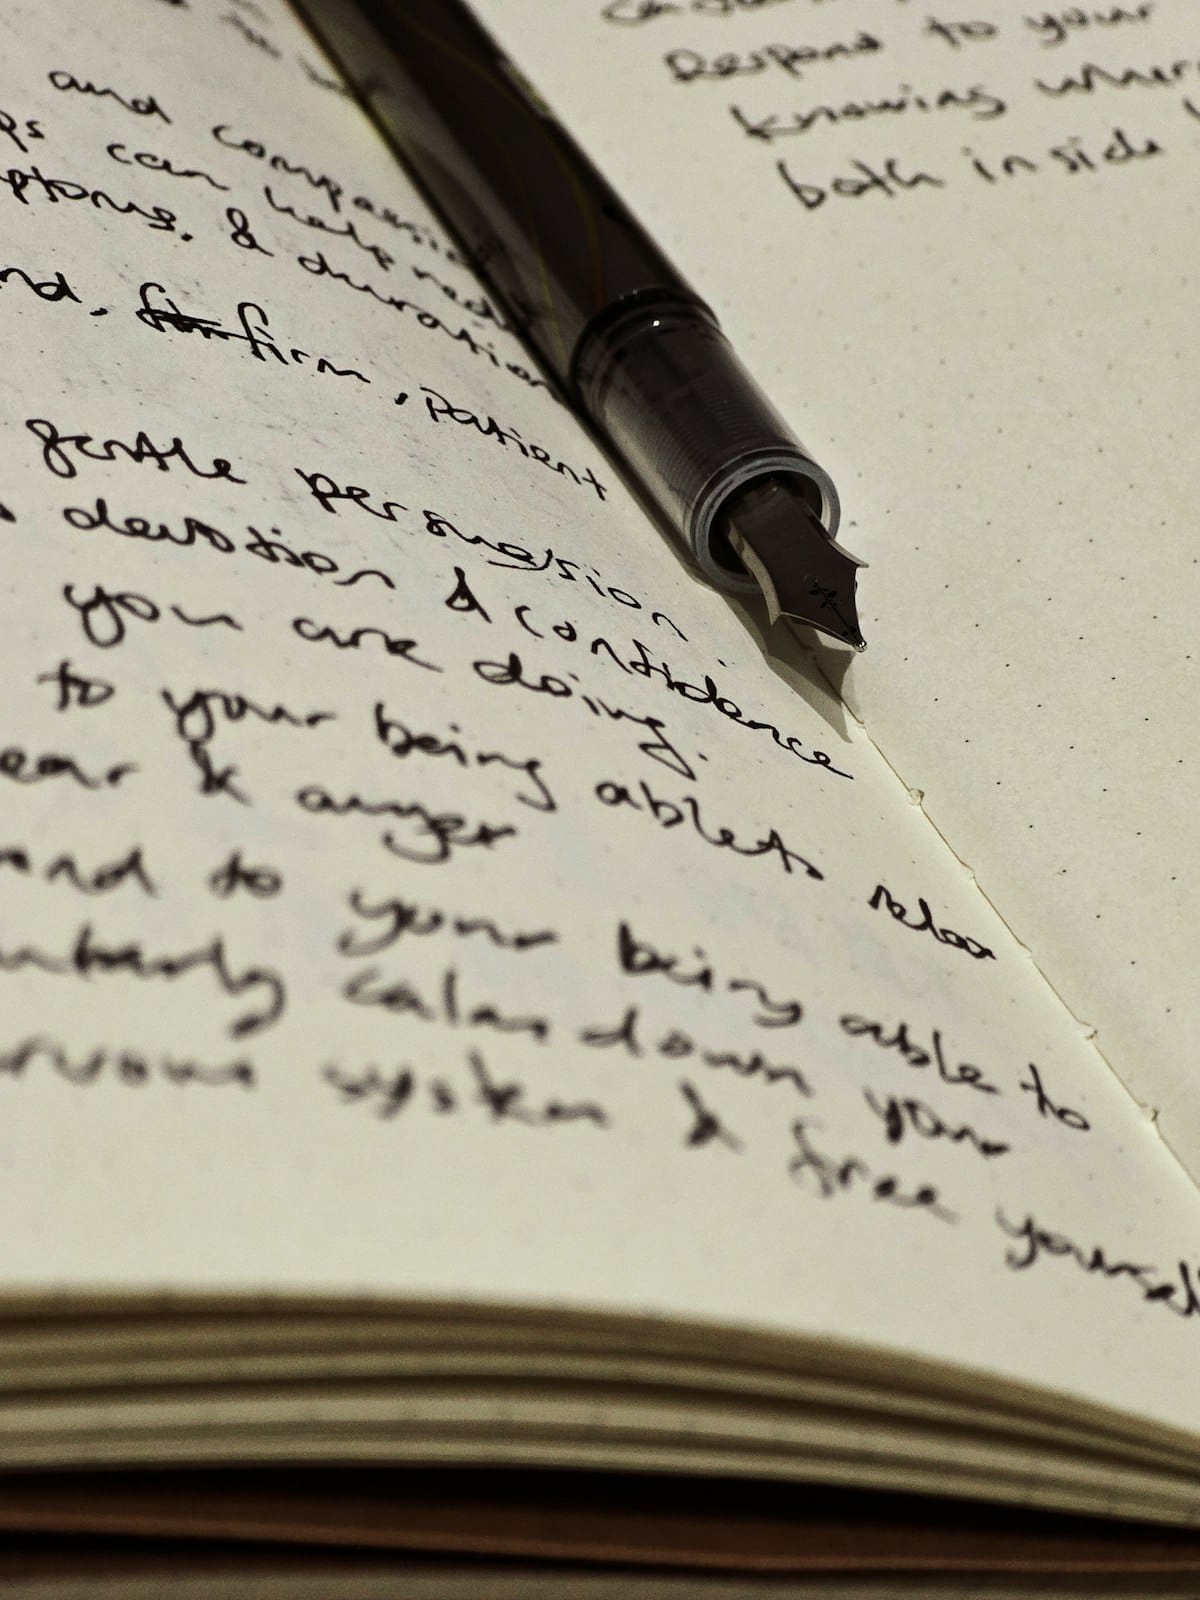 and compassion
can help redu
& duration
firm, patient
gentle persuasion.
devotion & confidence
you are doing.
to your being able to relax
ear & anger
and to your being able to
calm down your
system & free yoursel
Respond to your
knowing wher
both inside